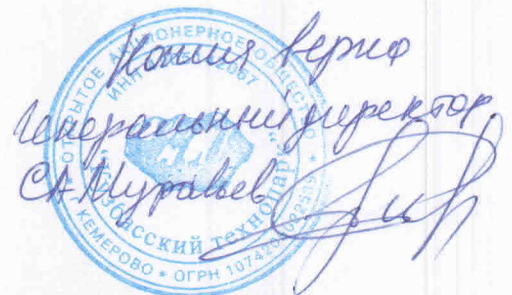 Копия верна
Генеральный директор
С.А. Муравьев
ОТКРЫТОЕ АКЦИОНЕРНОЕ ОБЩЕСТВО
ИНН
"Кузбасский технопарк"
КЕМЕРОВО * ОГРН